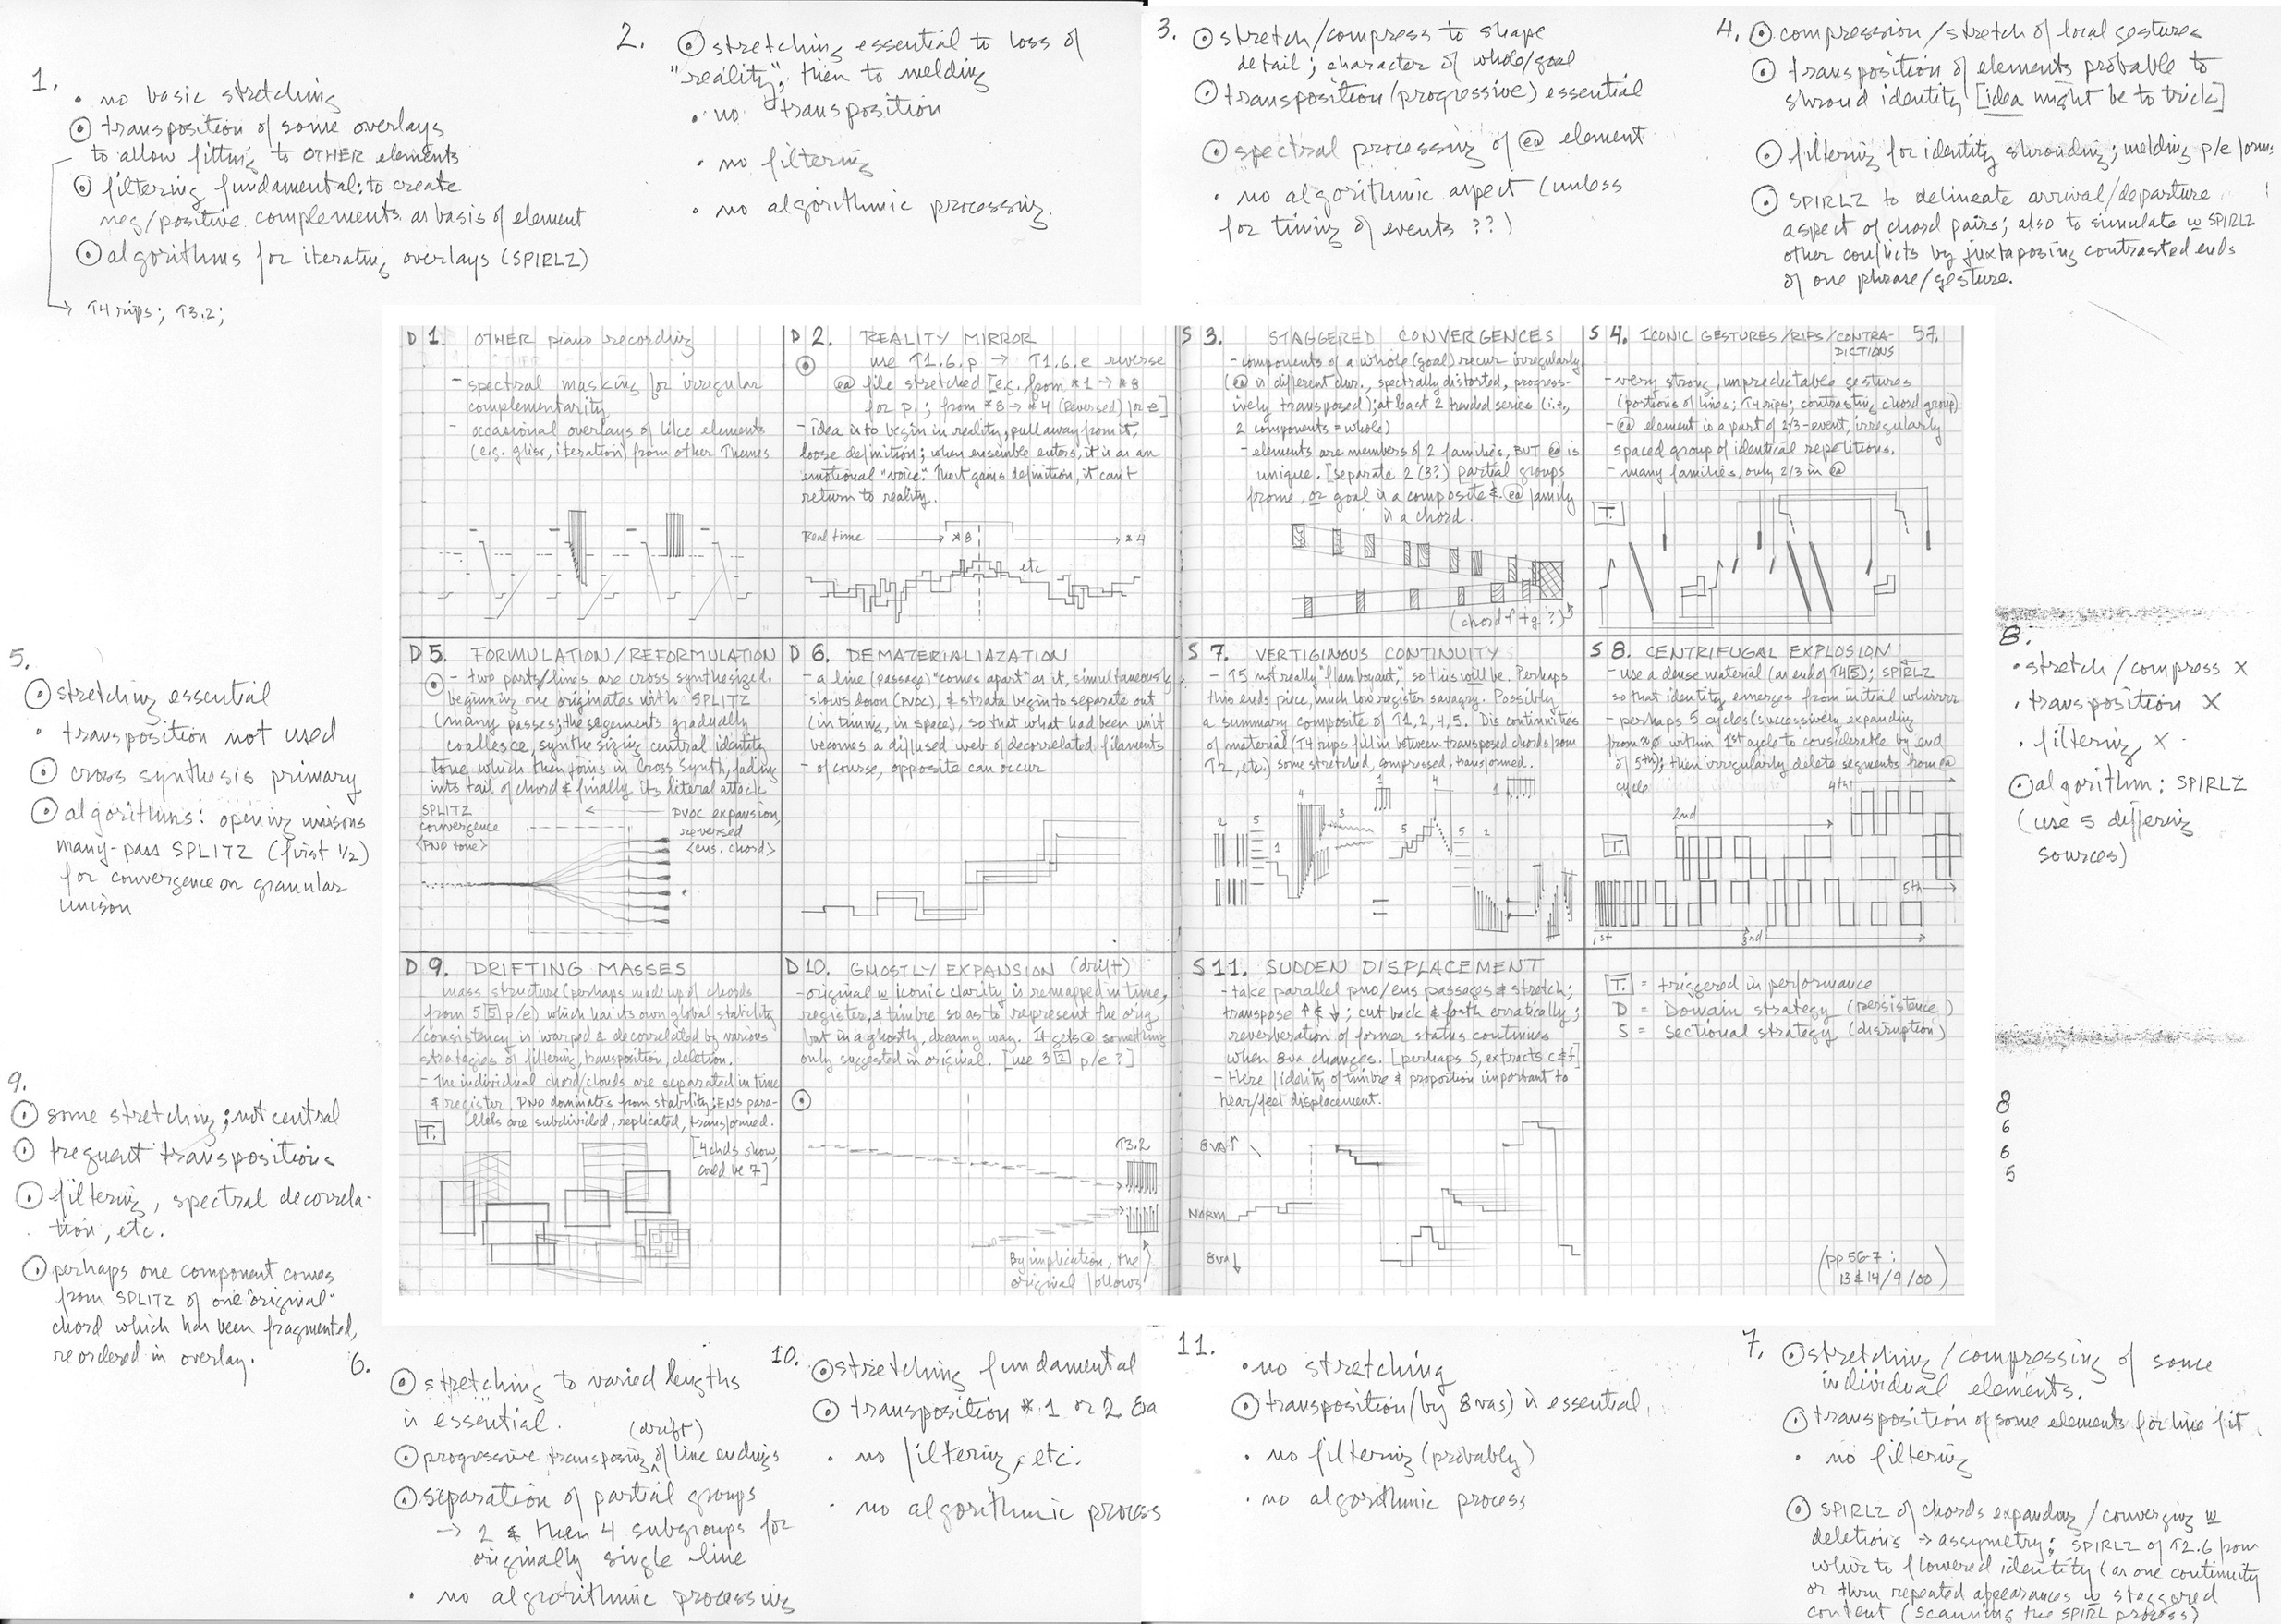 1.
• no basic stretching
⊙ transposition of some overlays
to allow fitting to OTHER elements
⊙ filtering fundamental: to create
neg/positive complements as basis of element
⊙ algorithms for iterating overlays (SPIRLZ)
→ T4 rips; T3.2;
2. ⊙ stretching essential to loss of
"reality"; then to melding
• no transposition
• no filtering
• no algorithmic processing.
3. ⊙ stretch/compress to shape
detail; character of whole/goal
⊙ transposition (progressive) essential
⊙ spectral processing of @ element
• no algorithmic aspect (unless
for timing of events ??)
4. ⊙ compression/stretch of local gestures
⊙ transposition of elements probable to
shroud identity [idea might be to trick]
⊙ filtering for identity shrouding; melding p/e forms
⊙ SPIRLZ to delineate arrival/departure
aspect of chord pairs; also to simulate w SPIRLZ
other conflicts by juxtaposing contrasted ends
of one phrase/gesture.
D 1. OTHER piano recording
- spectral masking for irregular
complementarity
- occasional overlays of like elements
(e.g. gliss, iteration) from other Themes
D 2. REALITY MIRROR
⊙ use T1.6.p → T1.6.e reverse
@ file stretched [e.g. from *1 → *8
for p.; from *8 → *4 (reversed) for e]
- idea is to begin in reality, pull away from it,
loose definition; when ensemble enters, it is as an
emotional "voice." Tho it gains definition, it can't
return to reality.
Real time → *8 → *4
etc
S 3. STAGGERED CONVERGENCES
- components of a whole (goal) recur irregularly
(@ is different dur., spectrally distorted, progress-
ively transposed); at least 2 trended series (i.e.,
2 components = whole)
- elements are members of 2 families, BUT @ is
unique. [separate 2 (3?) partial groups
from e, or goal is a composite & @ family
is a chord.
(chord f + g ?)
S 4. ICONIC GESTURES/RIPS/CONTRA-
DICTIONS
57.
- very strong, unpredictable gestures
(portions of lines; T4 rips; contrasting chord group)
- @ element is a part of 2/3-event, irregularly
spaced group of identical repetitions.
- many families, only 2/3 in @
T.
5.
⊙ stretching essential
• transposition not used
⊙ cross synthesis primary
⊙ algorithms: opening unisons
many-pass SPLITZ (first 1/2)
for convergence on granular
unison
D 5. FORMULATION/REFORMULATION
⊙ - two parts/lines are cross synthesized.
beginning one originates with SPLITZ
(many passes; the segments gradually
coallesce, synthesizing central identity
tone which then joins in cross synth, fading
into tail of chord & finally its literal attack
SPLITZ
convergence
<PNO tone>
PVOC expansion,
reversed
<ens. chord>
D 6. DEMATERIALIAZATION
- a line (passage) "comes apart" as it, simultaneously
slows down (PVOC), & strata begin to separate out
(in timing, in space), so that what had been unit
becomes a diffused web of decorrelated filaments
- of course, opposite can occur
S 7. VERTIGINOUS CONTINUITY
- T5 not really "flamboyant," so this will be. Perhaps
this ends piece, much low register savagry. Possibly
a summary composite of T1, 2, 4, 5. Discontinuities
of material (T4 rips fill in between transposed chords from
T2, etc.) some stretched, compressed, transformed.
2 5 1 4 3 1 4 5 5 2 1
S 8. CENTRIFUGAL EXPLOSION
- use a dense material (as end of T4 5); SPIRLZ
so that identity emerges from initial whirrrr
- perhaps 5 cycles (successively expanding
from ≈0 within 1st cycle to considerable by end
of 5th); then irregularly delete segments from @
cycle
T.
1st
2nd
3rd
4th
5th
8.
• stretch/compress X
• transposition X
• filtering X
⊙ algorithm: SPIRLZ
(use 5 differing
sources)
9.
⊙ some stretching; not central
⊙ frequent transpositions
⊙ filtering, spectral decorrela-
tion, etc.
⊙ perhaps one component comes
from SPLITZ of one "original"
chord which has been fragmented,
reordered in overlay.
D 9. DRIFTING MASSES
mass structure (perhaps made up of chords
from 5 5 p/e) which has its own global stability
/consistency is warped & decorrelated by various
strategies of filtering, transposition, deletion.
- The individual chord/clouds are separated in time
& register. PNO dominates from stability; ENS para-
llels are subdivided, replicated, transformed.
T.
[4 chds show,
could be 7]
D 10. GHOSTLY EXPANSION (drift)
- original w iconic clarity is remapped in time,
register, & timbre so as to represent the orig
but in a ghostly, dreamy way. It gets @ something
only suggested in original. [use 3 2 p/e ?]
⊙
T3.2
By implication, the
original follows
S 11. SUDDEN DISPLACEMENT
- take parallel pno/ens passages & stretch;
transpose ↑ & ↓; cut back & forth erratically;
reverberation of former status continues
when 8va changes. [perhaps 5, extracts c & f]
- Here fidelity of timbre & proportion important to
hear/feel displacement.
8VA↑
NORM
8VA↓
T. = triggered in performance
D = Domain strategy (persistence)
S = Sectional strategy (disruption)
(pp 56-7:
13 & 14/9/00)
8
6
6
5
6.
⊙ stretching to varied lengths
is essential.
(drift)
⊙ progressive transposing of line endings
⊙ separation of partial groups
→ 2 & then 4 subgroups for
originally single line
• no algorithmic processing
10. ⊙ stretching fundamental
⊙ transposition * 1 or 2 8va
• no filtering, etc.
• no algorithmic process
11.
• no stretching
⊙ transposition (by 8vas) is essential.
• no filtering (probably)
• no algorithmic process
7. ⊙ stretching/compressing of some
individual elements.
⊙ transposition of some elements for line fit
• no filtering
⊙ SPIRLZ of chords expanding/converging w
deletions → assymetry; SPIRLZ of T2.6 from
whir to flowered identity (as one continuity
or thru repeated appearances w staggered
content (scanning the SPIRL process)